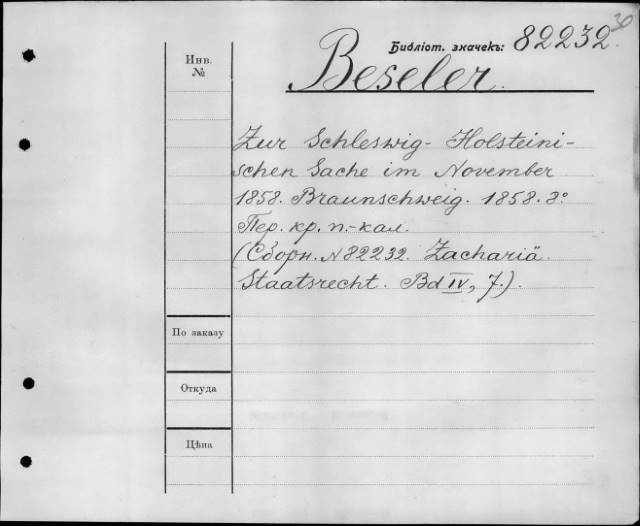 30
Библіот. значекъ: 82232.
Инв. №
Beseler.
Zur Schleswig-Holsteini-
schen Sache im November
1858. Braunschweig. 1858. 8º
Пер. кр. п.-кал.
(Сборн. N 82232. Zachariä.
Staatsrecht. Bd IV, 7.)
По заказу
Откуда
Цѣна